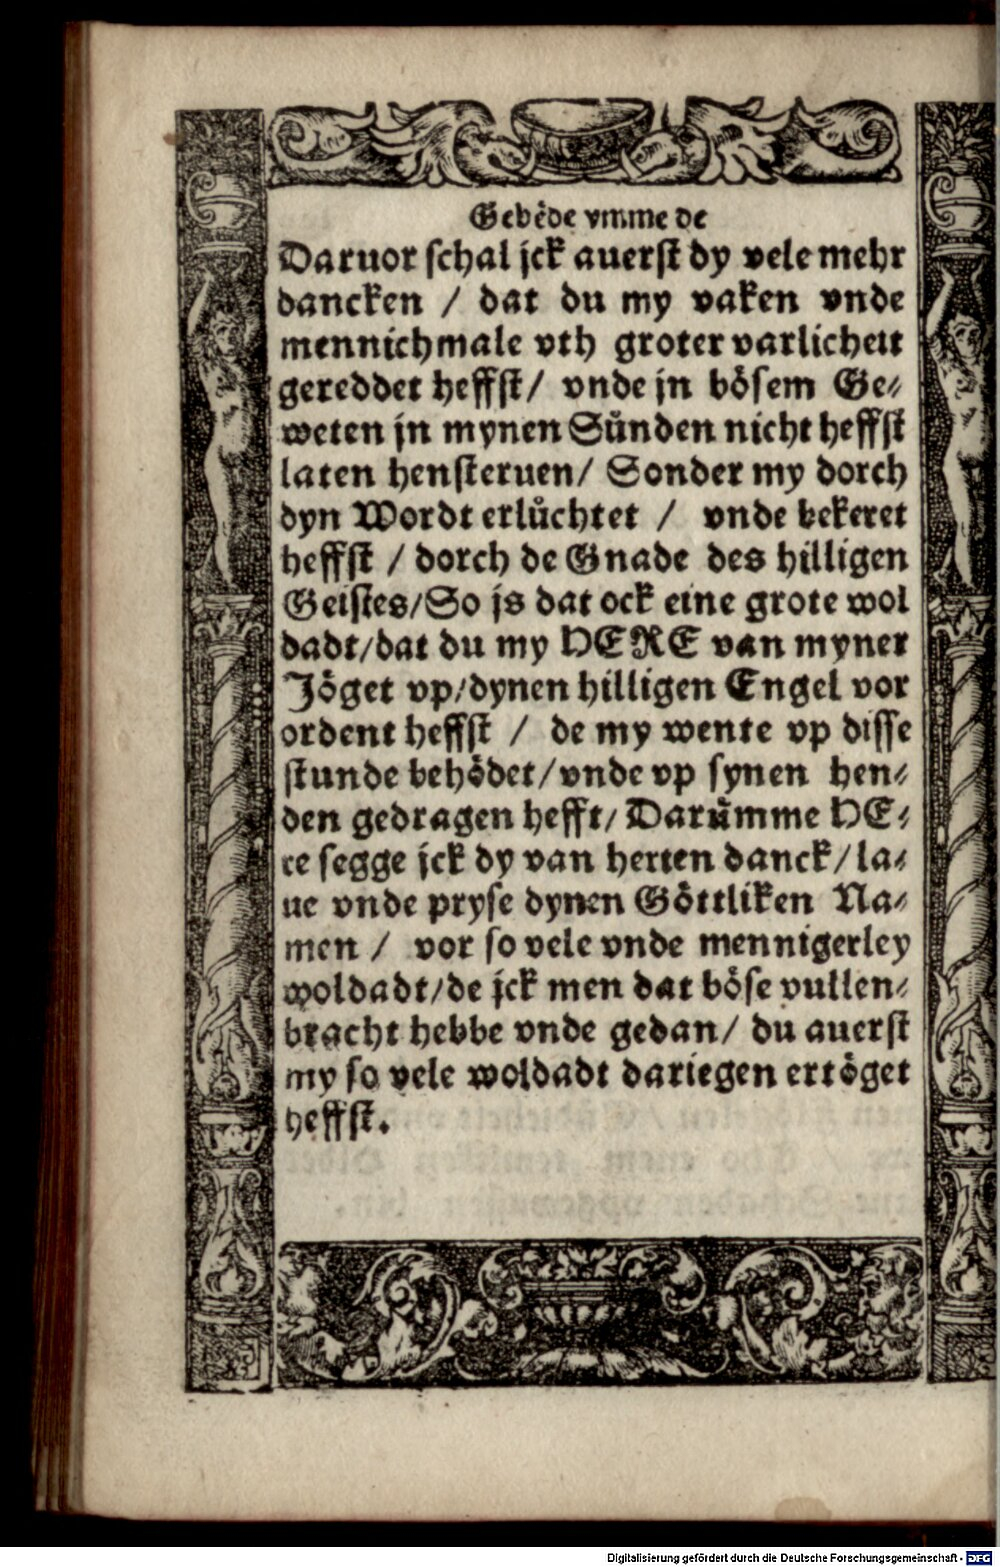 Gebêde vmme de
Daruor schal jck auerst dy vele mehr
dancken / dat du my vaken vnde
mennichmale vth groter varlicheit
gereddet heffst/ vnde jn bösem Ge⸗
weten jn mynen Sünden nicht heffst
laten hensteruen/ Sonder my dorch
dyn Wordt erlüchtet / vnde bekeret
heffst / dorch de Gnade des hilligen
Geistes/So js dat ock eine grote wol
dadt/dat du my HERE van myner
Jöget vp/dynen hilligen Engel vor
ordent heffst / de my wente vp disse
stunde behödet/vnde vp synen hen⸗
den gedragen hefft/ Darümme HE⸗
re segge jck dy van herten danck/la⸗
ue vnde pryse dynen Göttliken Na⸗
men / vor so vele vnde mennigerley
woldadt/de jck men dat böse vullen⸗
bracht hebbe vnde gedan/ du auerst
my so vele woldadt dariegen ertöget
heffst.
Digitalisierung gefördert durch die Deutsche Forschungsgemeinschaft - DFG